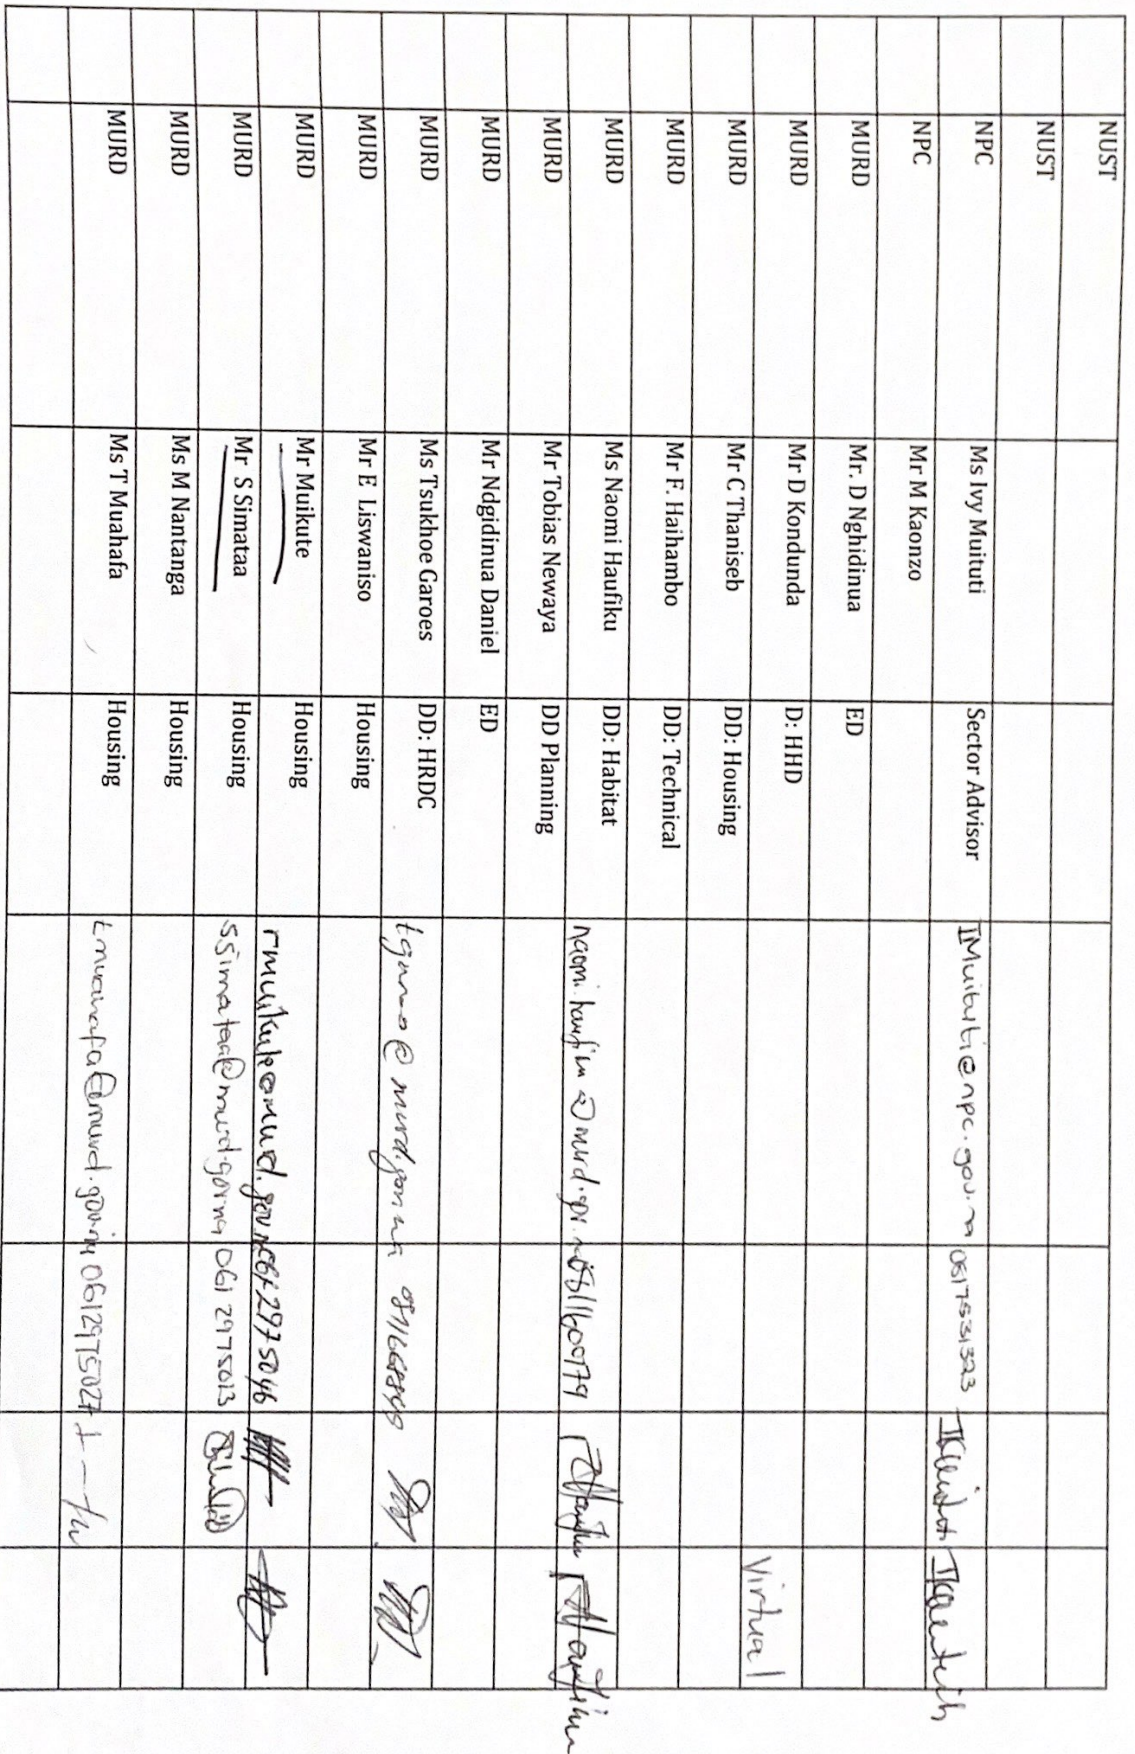 NUST
NUST
NPC Ms Ivy Muituti Sector Advisor IMuituti@npc.gov.na 0817531323
NPC Mr M Kaonzo
MURD Mr. D Nghidinua ED
MURD Mr D Kondunda D: HHD
MURD Mr C Thaniseb DD: Housing Virtual
MURD Mr F. Haihambo DD: Technical
MURD Ms Naomi Haufiku DD: Habitat 0811600179
MURD Mr Tobias Newaya DD Planning
MURD Mr Ndgidinua Daniel ED
MURD Ms Tsukhoe Garoes DD: HRDC
MURD Mr E Liswaniso Housing
MURD Mr Muikute Housing
MURD Mr S Simataa Housing ssimataa@murd.gov.na 061 2975013
MURD Ms M Nantanga Housing
MURD Ms T Muahafa Housing tmuahafa@murd.gov.na 0612975027